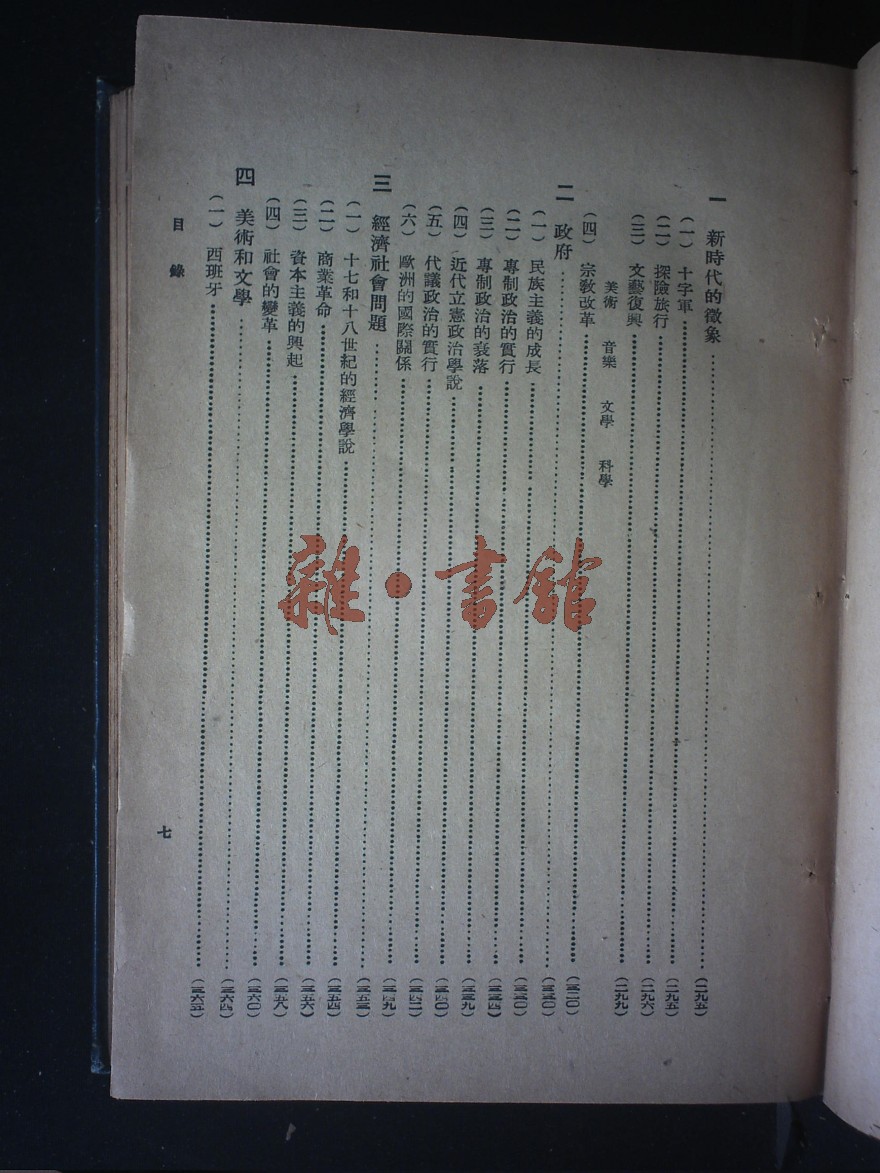 一 新時代的徵象……（二九五）
（一） 十字軍……（二九五）
（二） 探險旅行……（二九六）
（三） 文藝復興……（二九九）
美術 音樂 文學 科學
（四） 宗教改革……（三二〇）
二 政府……（三三〇）
（一） 民族主義的成長……（三三〇）
（二） 專制政治的實行……（三三四）
（三） 專制政治的衰落……（三三九）
（四） 近代立憲政治學說……（三四〇）
（五） 代議政治的實行……（三四二）
（六） 歐洲的國際關係……（三四九）
三 經濟社會問題……（三五三）
（一） 十七和十八世紀的經濟學說……（三五四）
（二） 商業革命……（三五六）
（三） 資本主義的興起……（三五八）
（四） 社會的變革……（三六〇）
四 美術和文學……（三六四）
（一） 西班牙……（三六五）
目錄
七
雜·書館